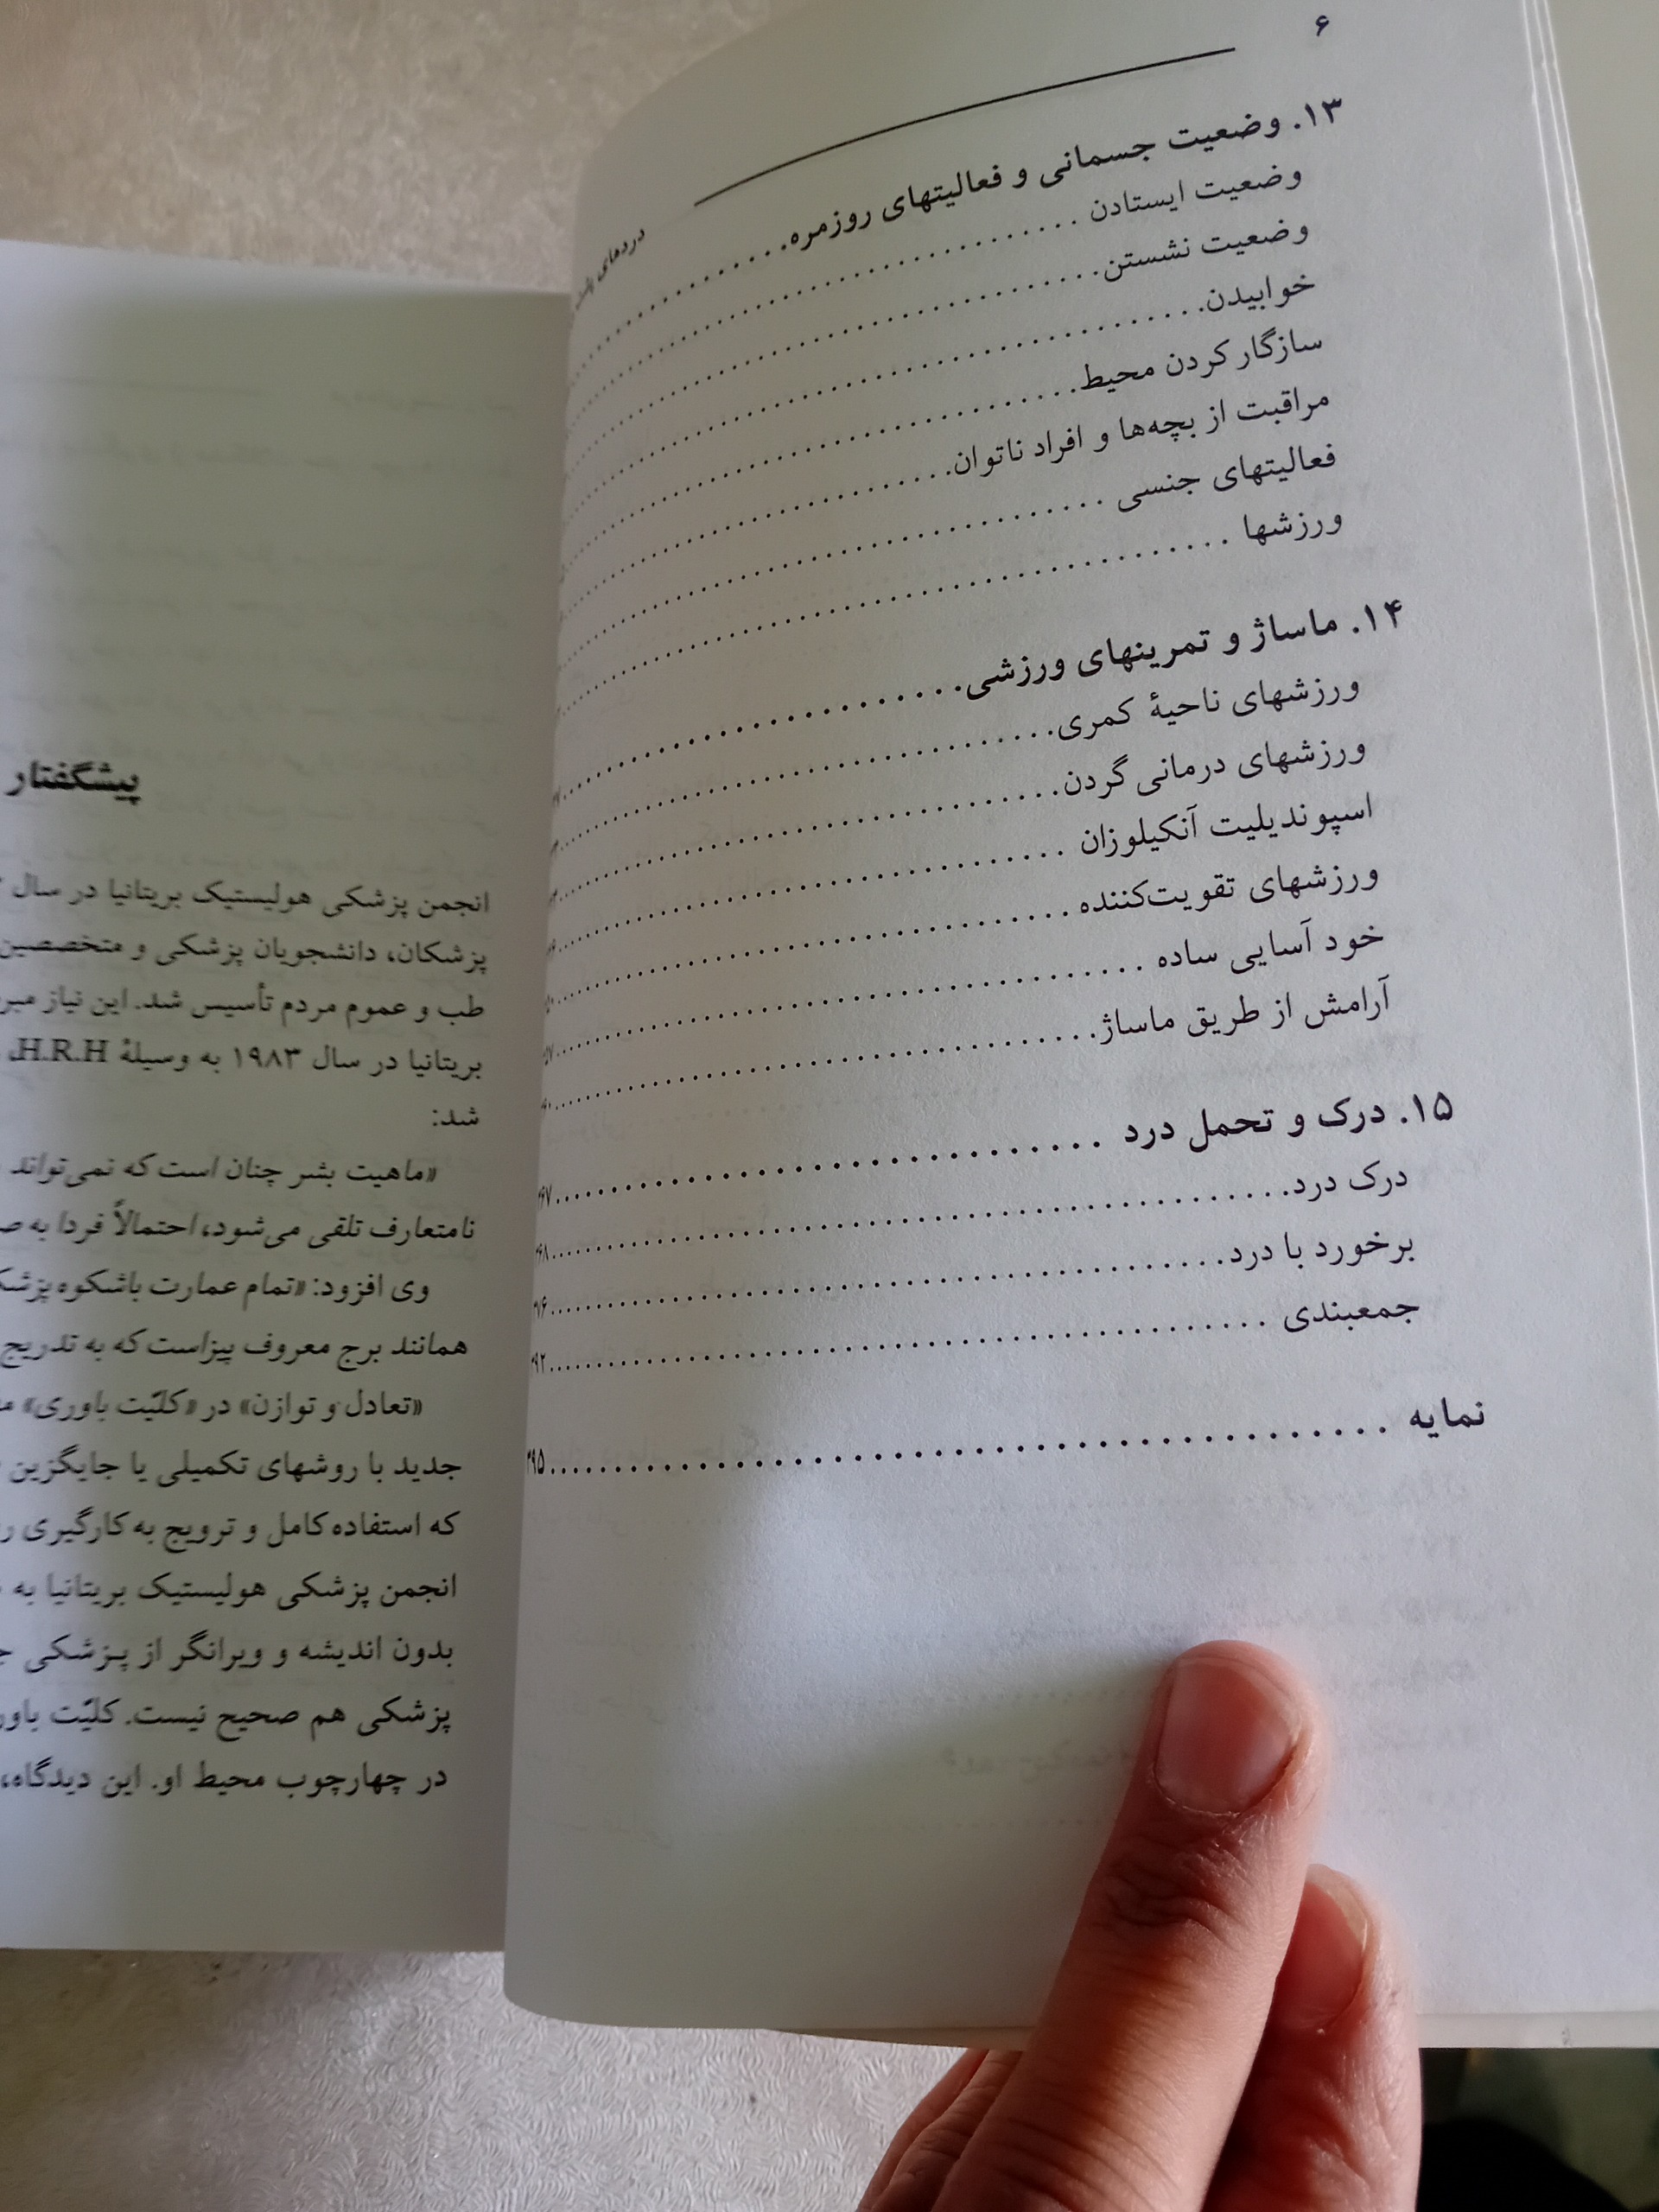 ۶
دردهای پشت
۱۳. وضعیت جسمانی و فعالیتهای روزمره
وضعیت ایستادن
وضعیت نشستن
خوابیدن
سازگار کردن محیط
مراقبت از بچه‌ها و افراد ناتوان
فعالیتهای جنسی
ورزشها
۱۴. ماساژ و تمرینهای ورزشی
ورزشهای ناحیهٔ کمری
ورزشهای درمانی گردن
اسپوندیلیت آنکیلوزان
ورزشهای تقویت‌کننده
خود آسایی ساده
آرامش از طریق ماساژ
۱۵. درک و تحمل درد
درک درد
برخورد با درد
جمعبندی
نمایه
پیشگفتار
انجمن پزشکی هولیستیک بریتانیا در سال
پزشکان، دانشجویان پزشکی و متخصصین
طب و عموم مردم تأسیس شد. این نیاز
بریتانیا در سال ۱۹۸۳ به وسیلهٔ H.R.H.
شد:
«ماهیت بشر چنان است که نمی‌تواند
نامتعارف تلقی می‌شود، احتمالاً فردا به
وی افزود: «تمام عمارت باشکوه
همانند برج معروف پیزاست که به تدریج
«تعادل و توازن» در «کلیّت باوری»
جدید با روشهای تکمیلی یا جایگزین
که استفاده کامل و ترویج به کارگیری
انجمن پزشکی هولیستیک بریتانیا به
بدون اندیشه و ویرانگر از پزشکی
پزشکی هم صحیح نیست. کلیّت
در چهارچوب محیط او. این دیدگاه،